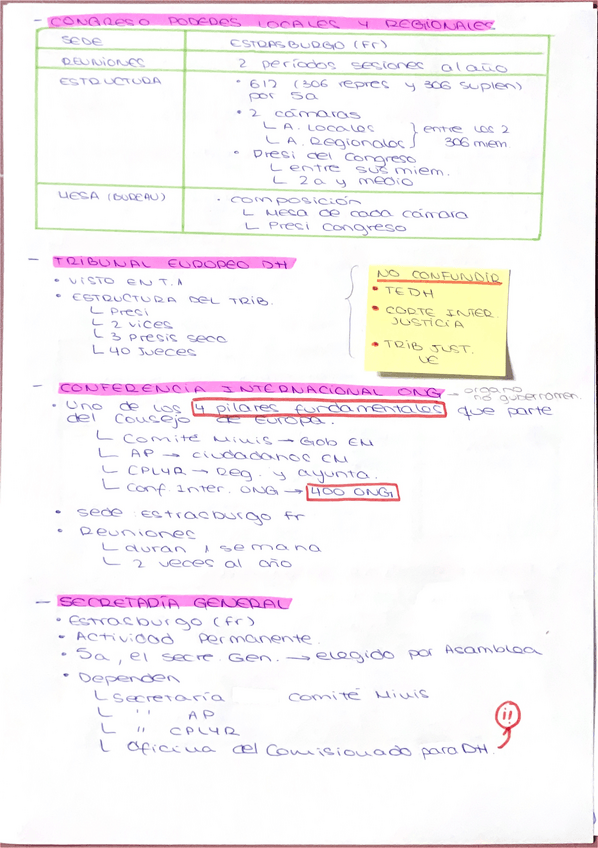 - CONGRESO PODERES LOCALES Y REGIONALES
SEDE ESTRASBURGO (Fr)
REUNIONES 2 períodos sesiones al año
ESTRUCTURA • 612 (306 repres y 306 suplen)
por 5a
• 2 cámaras
L A. Locales } entre los 2
L A. Regionales } 306 miem
• Presi del Congreso
L entre sus miem.
L 2a y medio
MESA (BUREAU) • composición
L Mesa de cada cámara
L Presi congreso
- TRIBUNAL EUROPEO DH
• VISTO EN T.1
• ESTRUCTURA DEL TRIB.
L Presi
L 2 vices
L 3 Presis secc
L 40 Jueces
NO CONFUNDIR
• TEDH
• CORTE INTER.
JUSTICIA
• TRIB JUST.
UE
- CONFERENCIA INTERNACIONAL ONG → organo
no gubernamen.
• Uno de los 4 pilares fundamentales que parte
del Consejo de Europa.
L Comité Minis → Gob EM
L AP → ciudadanos EM
L CPLYR → Reg. y ayunta.
L Conf. Inter. ONG → 400 ONG
• sede: Estrasburgo Fr
• Reuniones
L duran 1 semana
L 2 veces al año
- SECRETARÍA GENERAL
• Estrasburgo (Fr)
• Actividad permanente.
• 5a, el secre. Gen. → elegido por Asamblea
• Dependen
L Secretaría Comité Minis
L " AP
L " CPLYR
L Oficina del Comisionado para DH. ¡¡